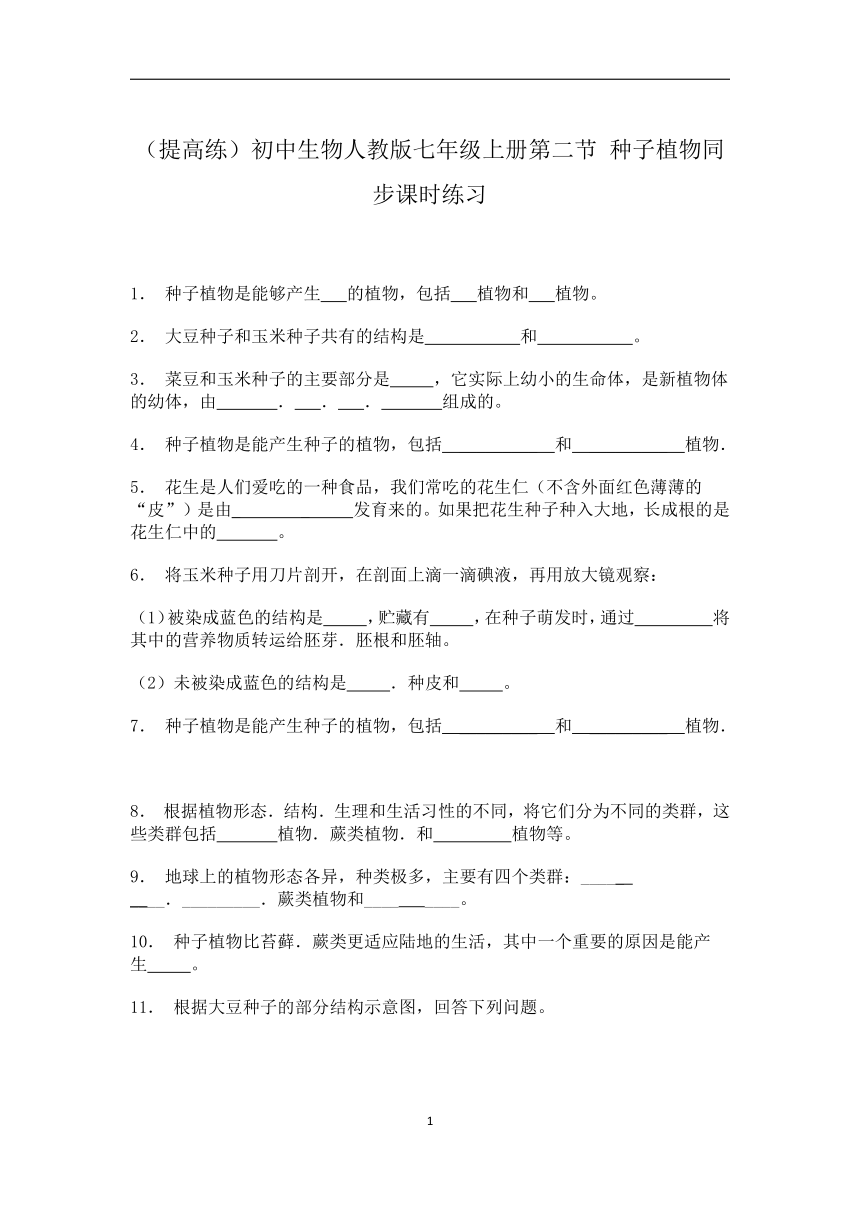 （提高练）初中生物人教版七年级上册第二节 种子植物同
步课时练习
1． 种子植物是能够产生___的植物，包括___植物和___植物。
2． 大豆种子和玉米种子共有的结构是___________和___________。
3． 菜豆和玉米种子的主要部分是_____，它实际上幼小的生命体，是新植物体
的幼体，由_______．___．___．_______组成的。
4． 种子植物是能产生种子的植物，包括_____________和_____________植物．
5． 花生是人们爱吃的一种食品，我们常吃的花生仁（不含外面红色薄薄的
“皮”）是由______________发育来的。如果把花生种子种入大地，长成根的是
花生仁中的_______。
6． 将玉米种子用刀片剖开，在剖面上滴一滴碘液，再用放大镜观察：
（1）被染成蓝色的结构是_____，贮藏有_____，在种子萌发时，通过_________将
其中的营养物质转运给胚芽．胚根和胚轴。
（2）未被染成蓝色的结构是_____．种皮和_____。
7． 种子植物是能产生种子的植物，包括_____________和_____________植物．
8． 根据植物形态．结构．生理和生活习性的不同，将它们分为不同的类群，这
些类群包括_______植物．蕨类植物．和_________植物等。
9． 地球上的植物形态各异，种类极多，主要有四个类群：______
____．_________．蕨类植物和___________。
10． 种子植物比苔藓．蕨类更适应陆地的生活，其中一个重要的原因是能产
生_____。
11． 根据大豆种子的部分结构示意图，回答下列问题。
1